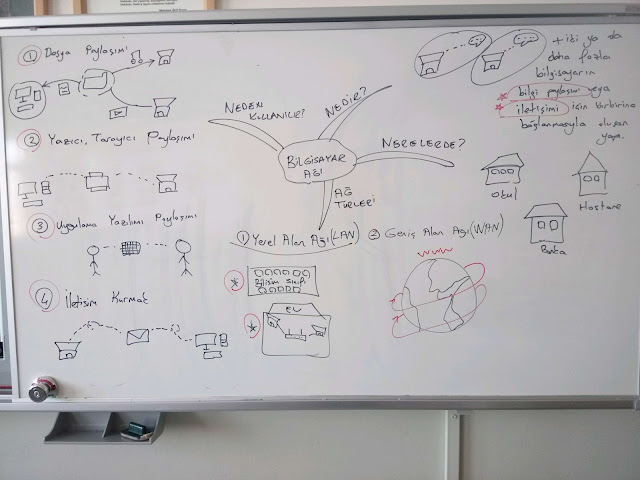 ① Dosya Paylaşımı
② Yazıcı, Tarayıcı Paylaşımı
③ Uygulama Yazılımı Paylaşımı
④ İletişim Kurmak
NEDEN
KULLANILIR?
NEDİR?
NERELERDE?
BİLGİSAYAR
AĞI
AĞ
TÜRLERİ
+ iki ya da
daha fazla
bilgisayarın
* bilgi paylaşımı veya
* iletişimi için birbirine
bağlanmasıyla oluşan
yapı.
Okul
Hastane
Banka
① Yerel Alan Ağı (LAN)
* Bilişim Sınıfı
* EV
② Geniş Alan Ağı (WAN)
WWW